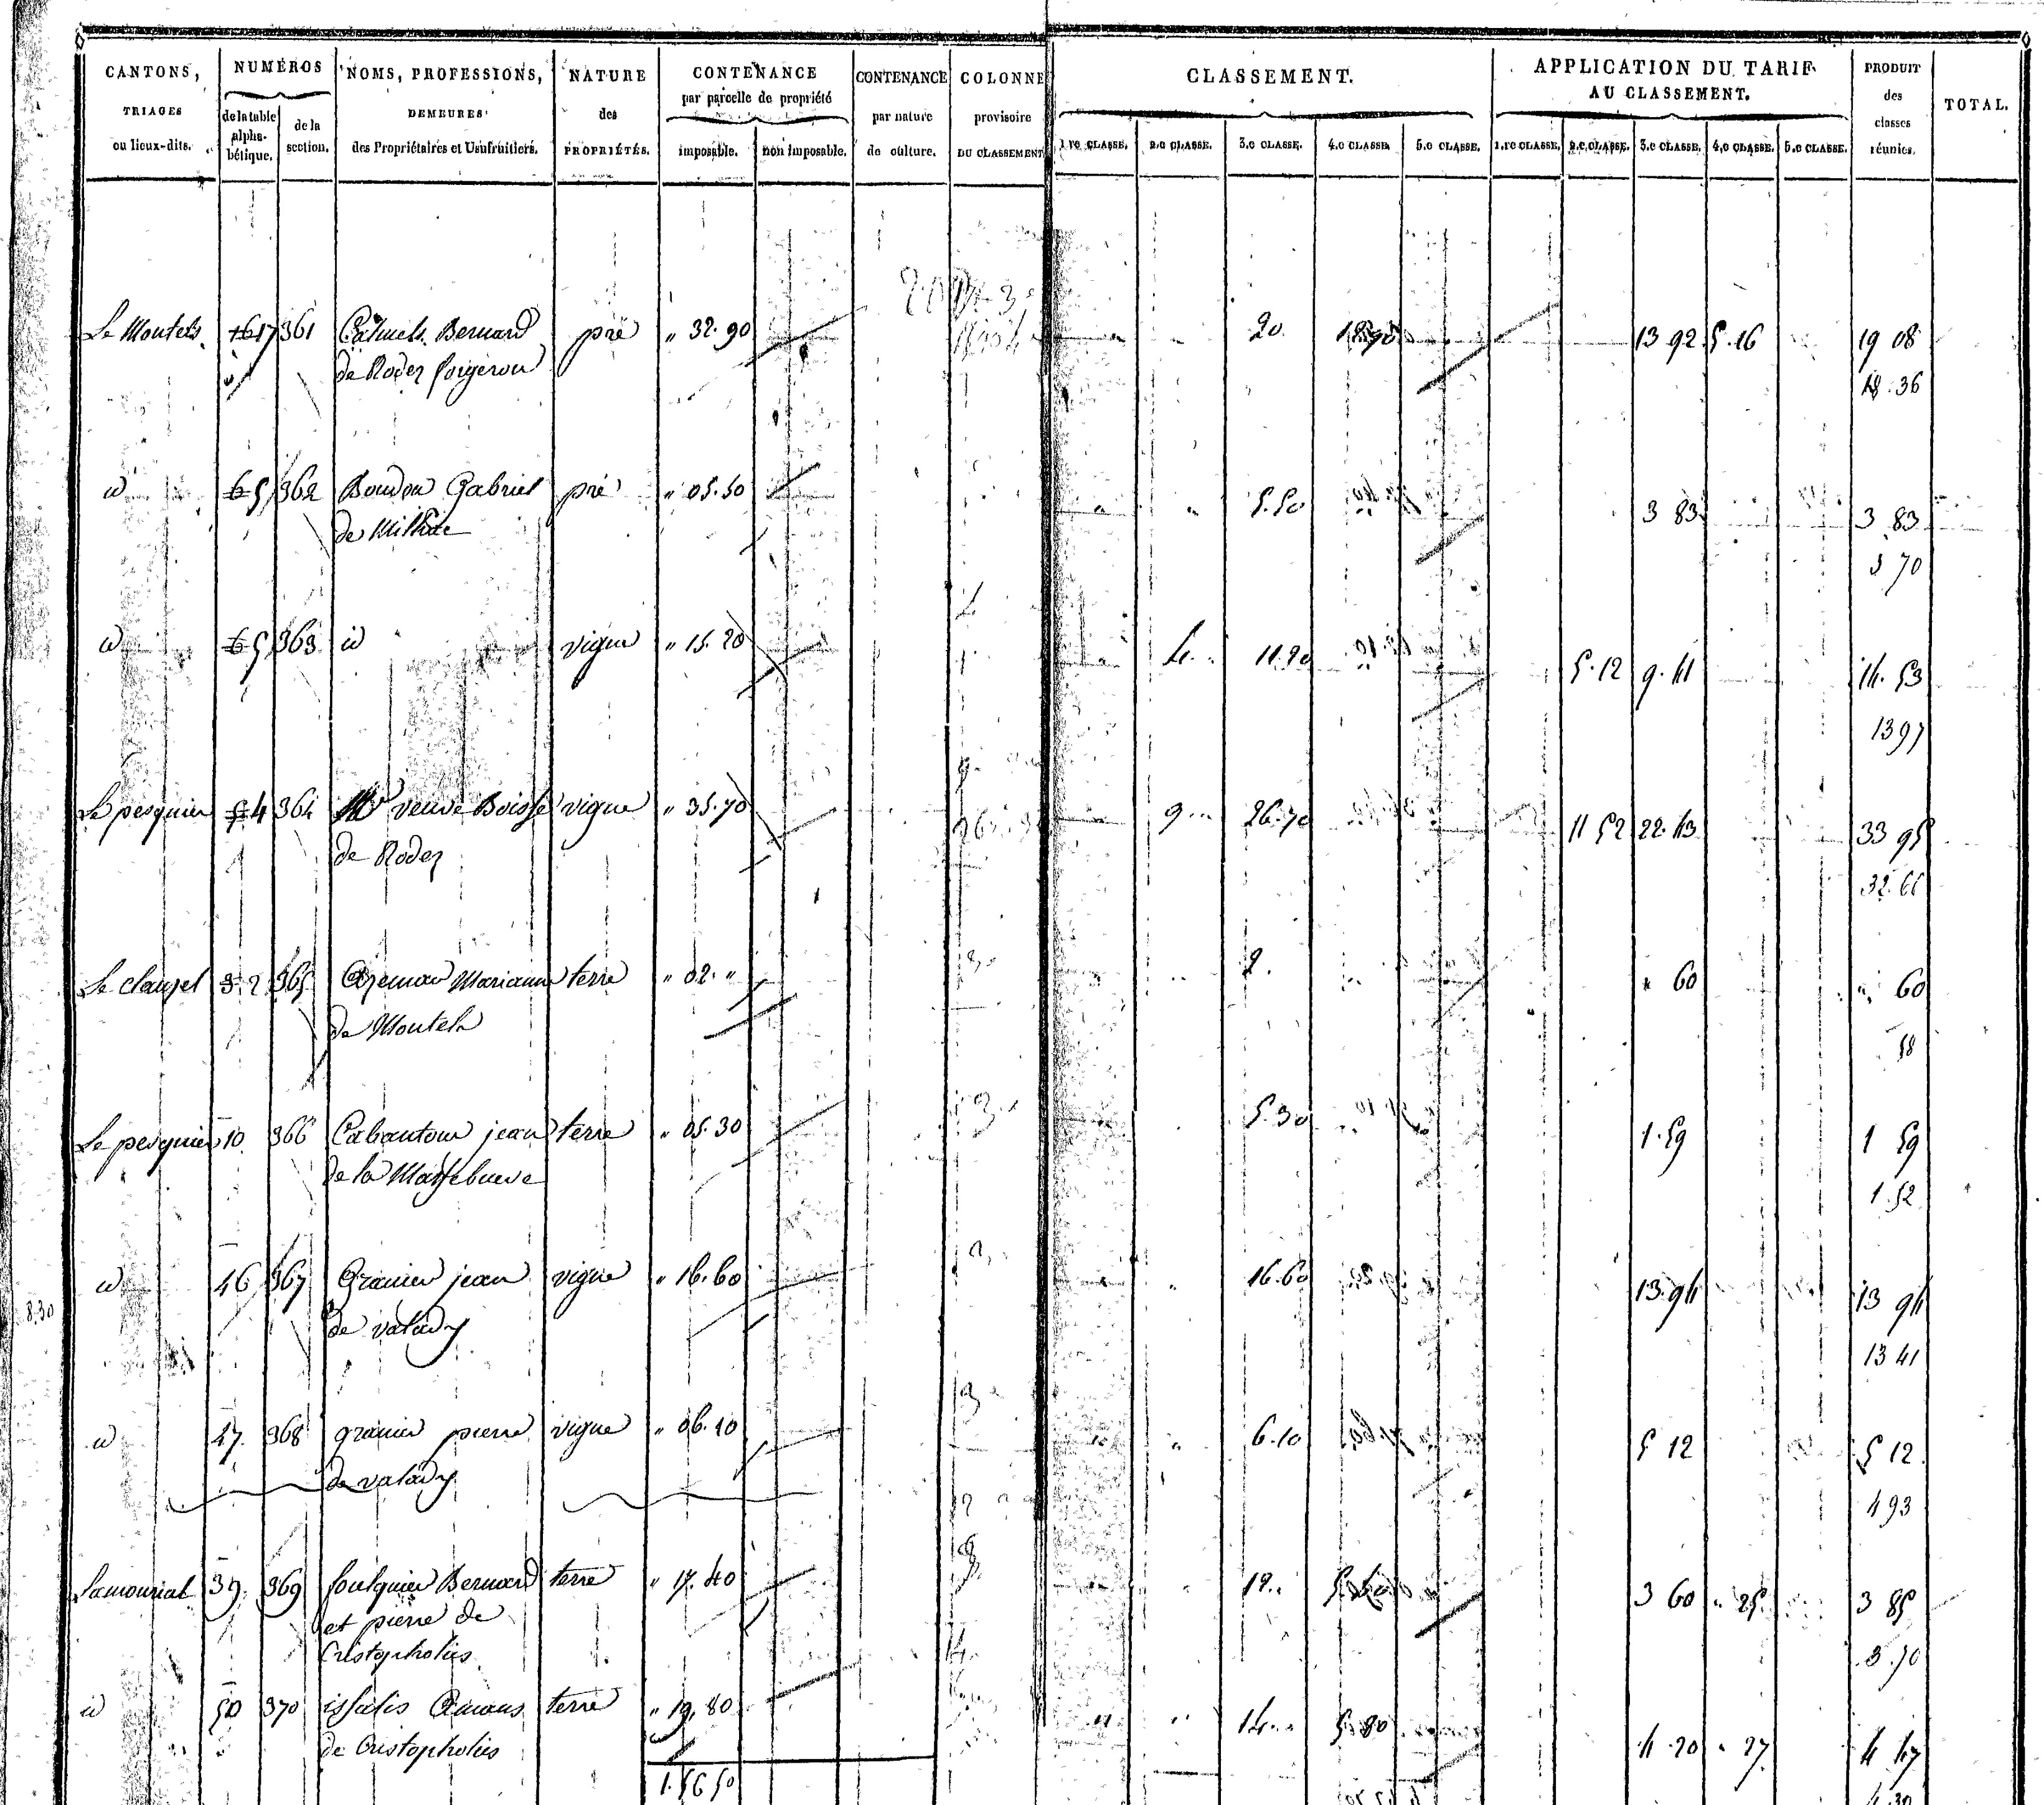 CANTONS, TRIAGES ou lieux-dits. NUMÉROS de la table alphabétique. de la section. NOMS, PROFESSIONS, DEMEURES des Propriétaires et Usufruitiers. NATURE des PROPRIÉTÉS. CONTENANCE par parcelle de propriété imposable. non imposable. CONTENANCE par nature de culture. COLONNE provisoire DU CLASSEMENT CLASSEMENT. 1.re CLASSE. 2.e CLASSE. 3.e CLASSE. 4.e CLASSE. 5.e CLASSE. APPLICATION DU TARIF AU CLASSEMENT. 1.re CLASSE. 2.e CLASSE. 3.e CLASSE. 4.e CLASSE. 5.e CLASSE. PRODUIT des classes réunies. TOTAL.
Le Moutels 361 Bernard pré " 32.90 20. 12.90 13 92 5.16 19 08
de Rodez forgeron 18.36
id 65 362 Boudou Gabriel pré " 05.50 " 5.50 3 83 3 83
de Milhac 3 70
id 65 363 id vigne " 15.20 4.. 11.20 5.12 9.41 14.53
13 97
Le pesquier 364 veuve Boisse vigne " 35.70 9... 26.70 11 52 22.43 33 95
de Rodez 32.66
Le clauzel 365 Azemar Marianne terre " 02. " 2. " 60 " 60
de Moutels 58
Le pesquier 10. 366 Cabantous jean terre " 05.30 5.30 1.59 1 59
de la 1.52
id 46 367 Granier jean vigne " 16.60 16.60 13.94 13 94
de valady 13 41
id 47. 368 granier pierre vigne " 06.10 6.10 5 12 5 12
de valady 4 93
Lamouriat 39. 369 foulquier Bernard terre " 17.40 12.. 3 60 " 25 3 85
et pierre de
Cristopholies 3.70
id 50 370 issalis Amans terre " 19.80 14.. 5.80 4.20 " 27 4 47
de Cristopholies
1.56 50 4 30
8.30